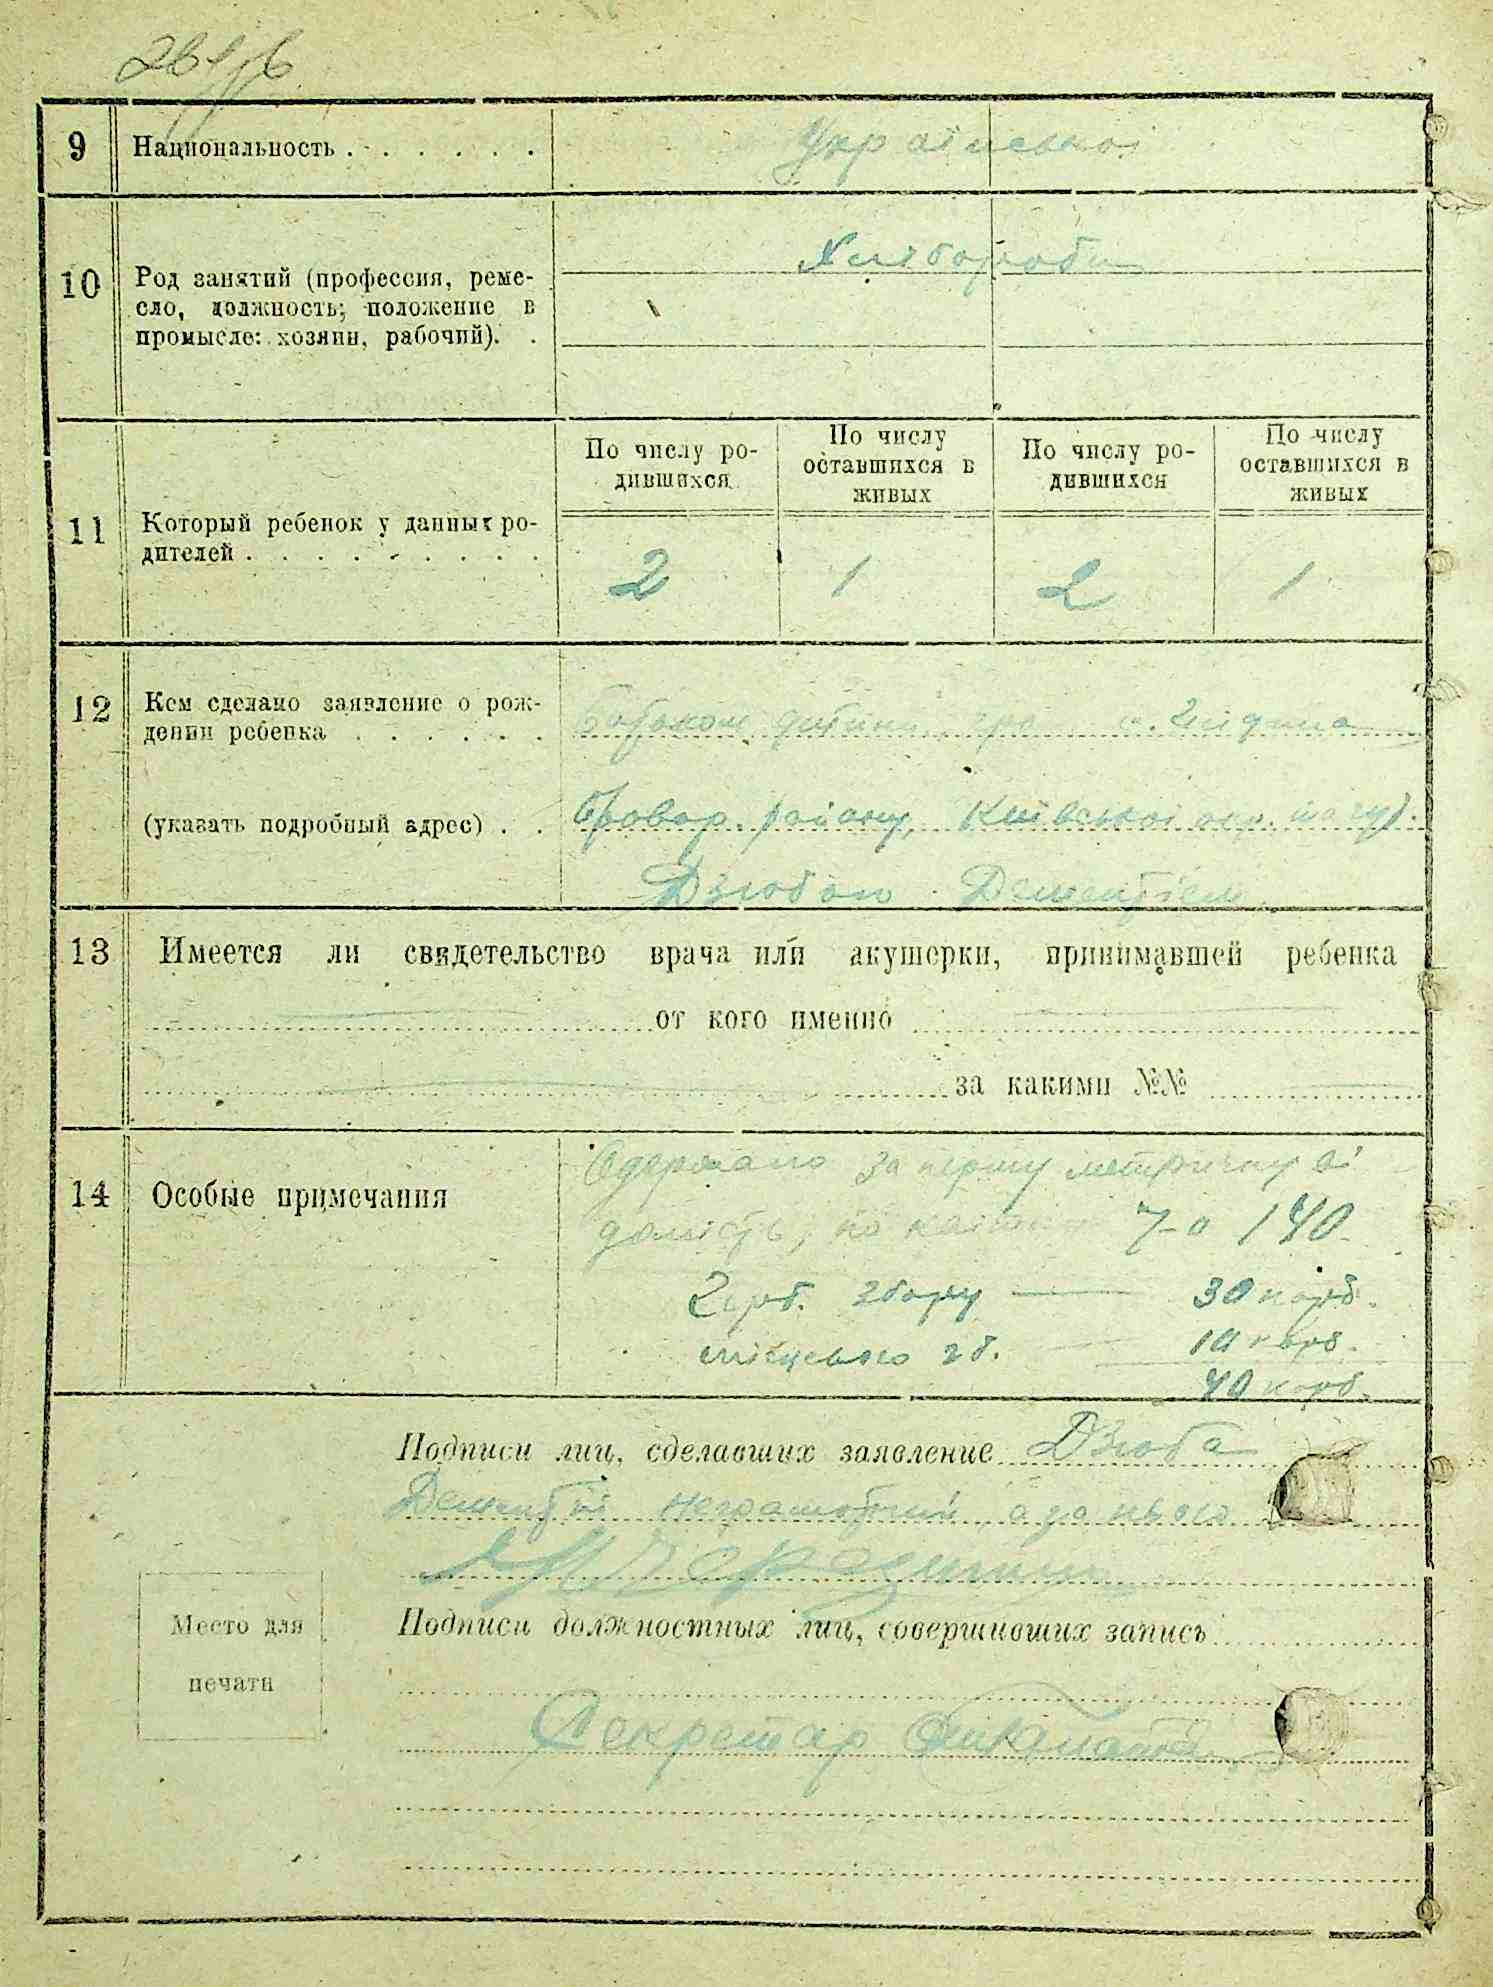 9 Национальность . . . . . . Української
10 Род занятий (профессия, реме-
сло, должность; положение в
промысле: хозяин, рабочий). . Хлібороби
По числу ро-
дившихся
По числу
оставшихся в
живых
По числу ро-
дившихся
По числу
оставшихся в
живых
11 Который ребенок у данных ро-
дителей . . . . . . . . . 2 1 2 1
12 Кем сделано заявление о рож-
дении ребенка . . . . . . Батьком дитини, гро. с.
(указать подробный адрес) . . Бровар. району, Київської окр.
Дзюбою Дементієм
13 Имеется ли свидетельство врача или акушерки, принимавшей ребенка
от кого именно
за какими №№
14 Особые примечания
Одержано за першу метричну ві
домість, по 7-о 140
Герб. збору — 30 карб.
місцевого зб. — 10 карб.
40 карб.
Подписи лиц, сделавших заявление Дзюба
Дементій неграмотний, а за нього
Подписи должностных лиц, совершивших запись
Место для
печати
Секретар